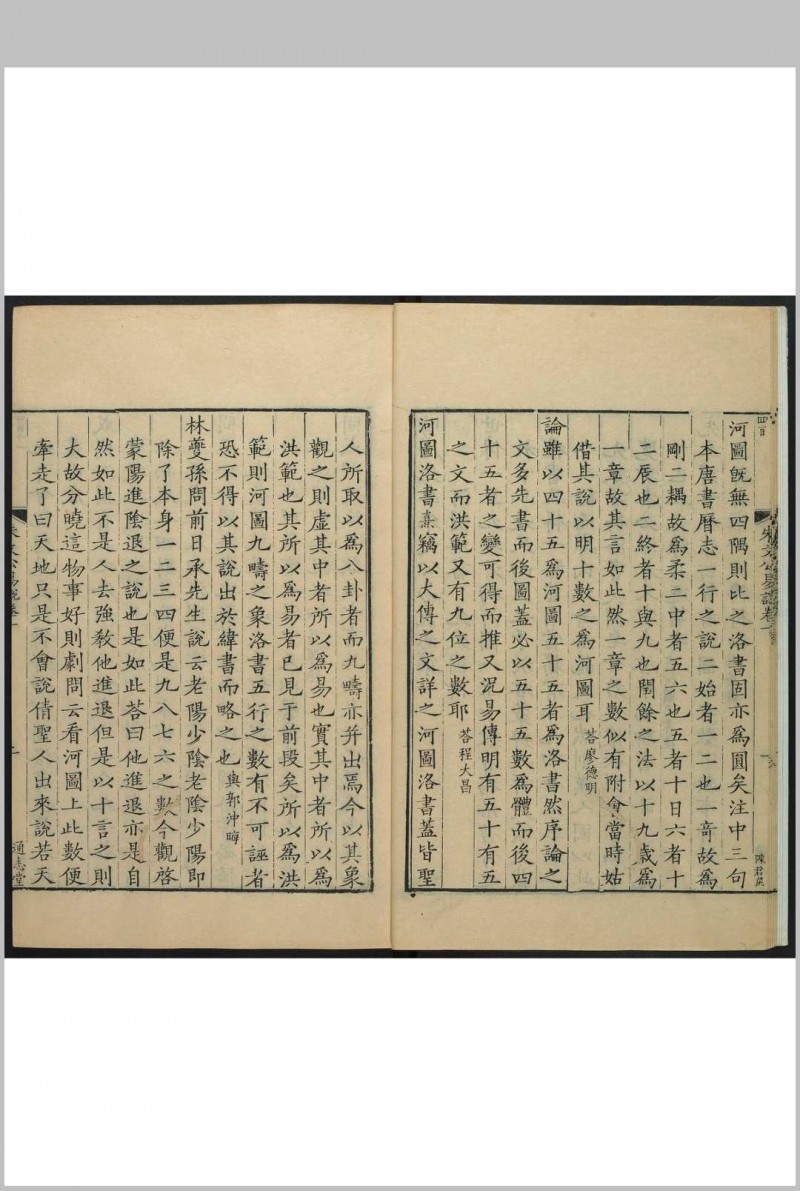 四百
朱文公易說卷一
陳君侯
河圖旣無四隅則比之洛書固亦爲圓矣注中三句
本唐書曆志一行之說二始者一二也一竒故爲
剛二耦故爲柔二中者五六也五者十日六者十
二辰也二終者十與九也閏餘之法以十九歲爲
一章故其言如此然一章之數似有附會當時姑
借其說以明十數之爲河圖耳 荅廖德明
論雖以四十五爲河圖五十五者爲洛書然序論之
文多先書而後圖蓋必以五十五數爲體而後四
十五者之變可得而推又況易傳明有五十有五
之文而洪範又有九位之數耶 荅程大昌
河圖洛書熹竊以大傳之文詳之河圖洛書蓋皆聖
人所取以爲八卦者而九疇亦并出焉今以其象
觀之則虛其中者所以爲易也實其中者所以爲
洪範也其所以爲易者已見于前段矣所以爲洪
範則河圖九疇之象洛書五行之數有不可誣者
恐不得以其說出於緯書而略之也 與郭沖晦
林夔孫問前日承先生說云老陽少陰老陰少陽即
除了本身一二三四便是九八七六之數今觀啓
蒙陽進陰退之說也是如此荅曰他進退亦是自
然如此不是人去強敎他進退但是以十言之則
大故分曉這物事好則劇問云看河圖上此數便
牽走了曰天地只是不會說倩聖人出來說若天
朱文公易說卷一
通志堂